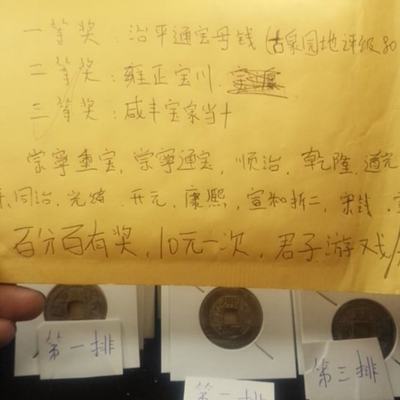 一等奖：治平通宝母钱（古泉园地评级80
二等奖：雍正宝川
三等奖：咸丰宝泉当十
崇宁重宝，崇宁通宝，顺治，乾隆，道光
同治，光绪，开元，康熙，宣和折二，宋钱，
百分百有奖，10元一次，君子游戏
第一排
第二排
第三排